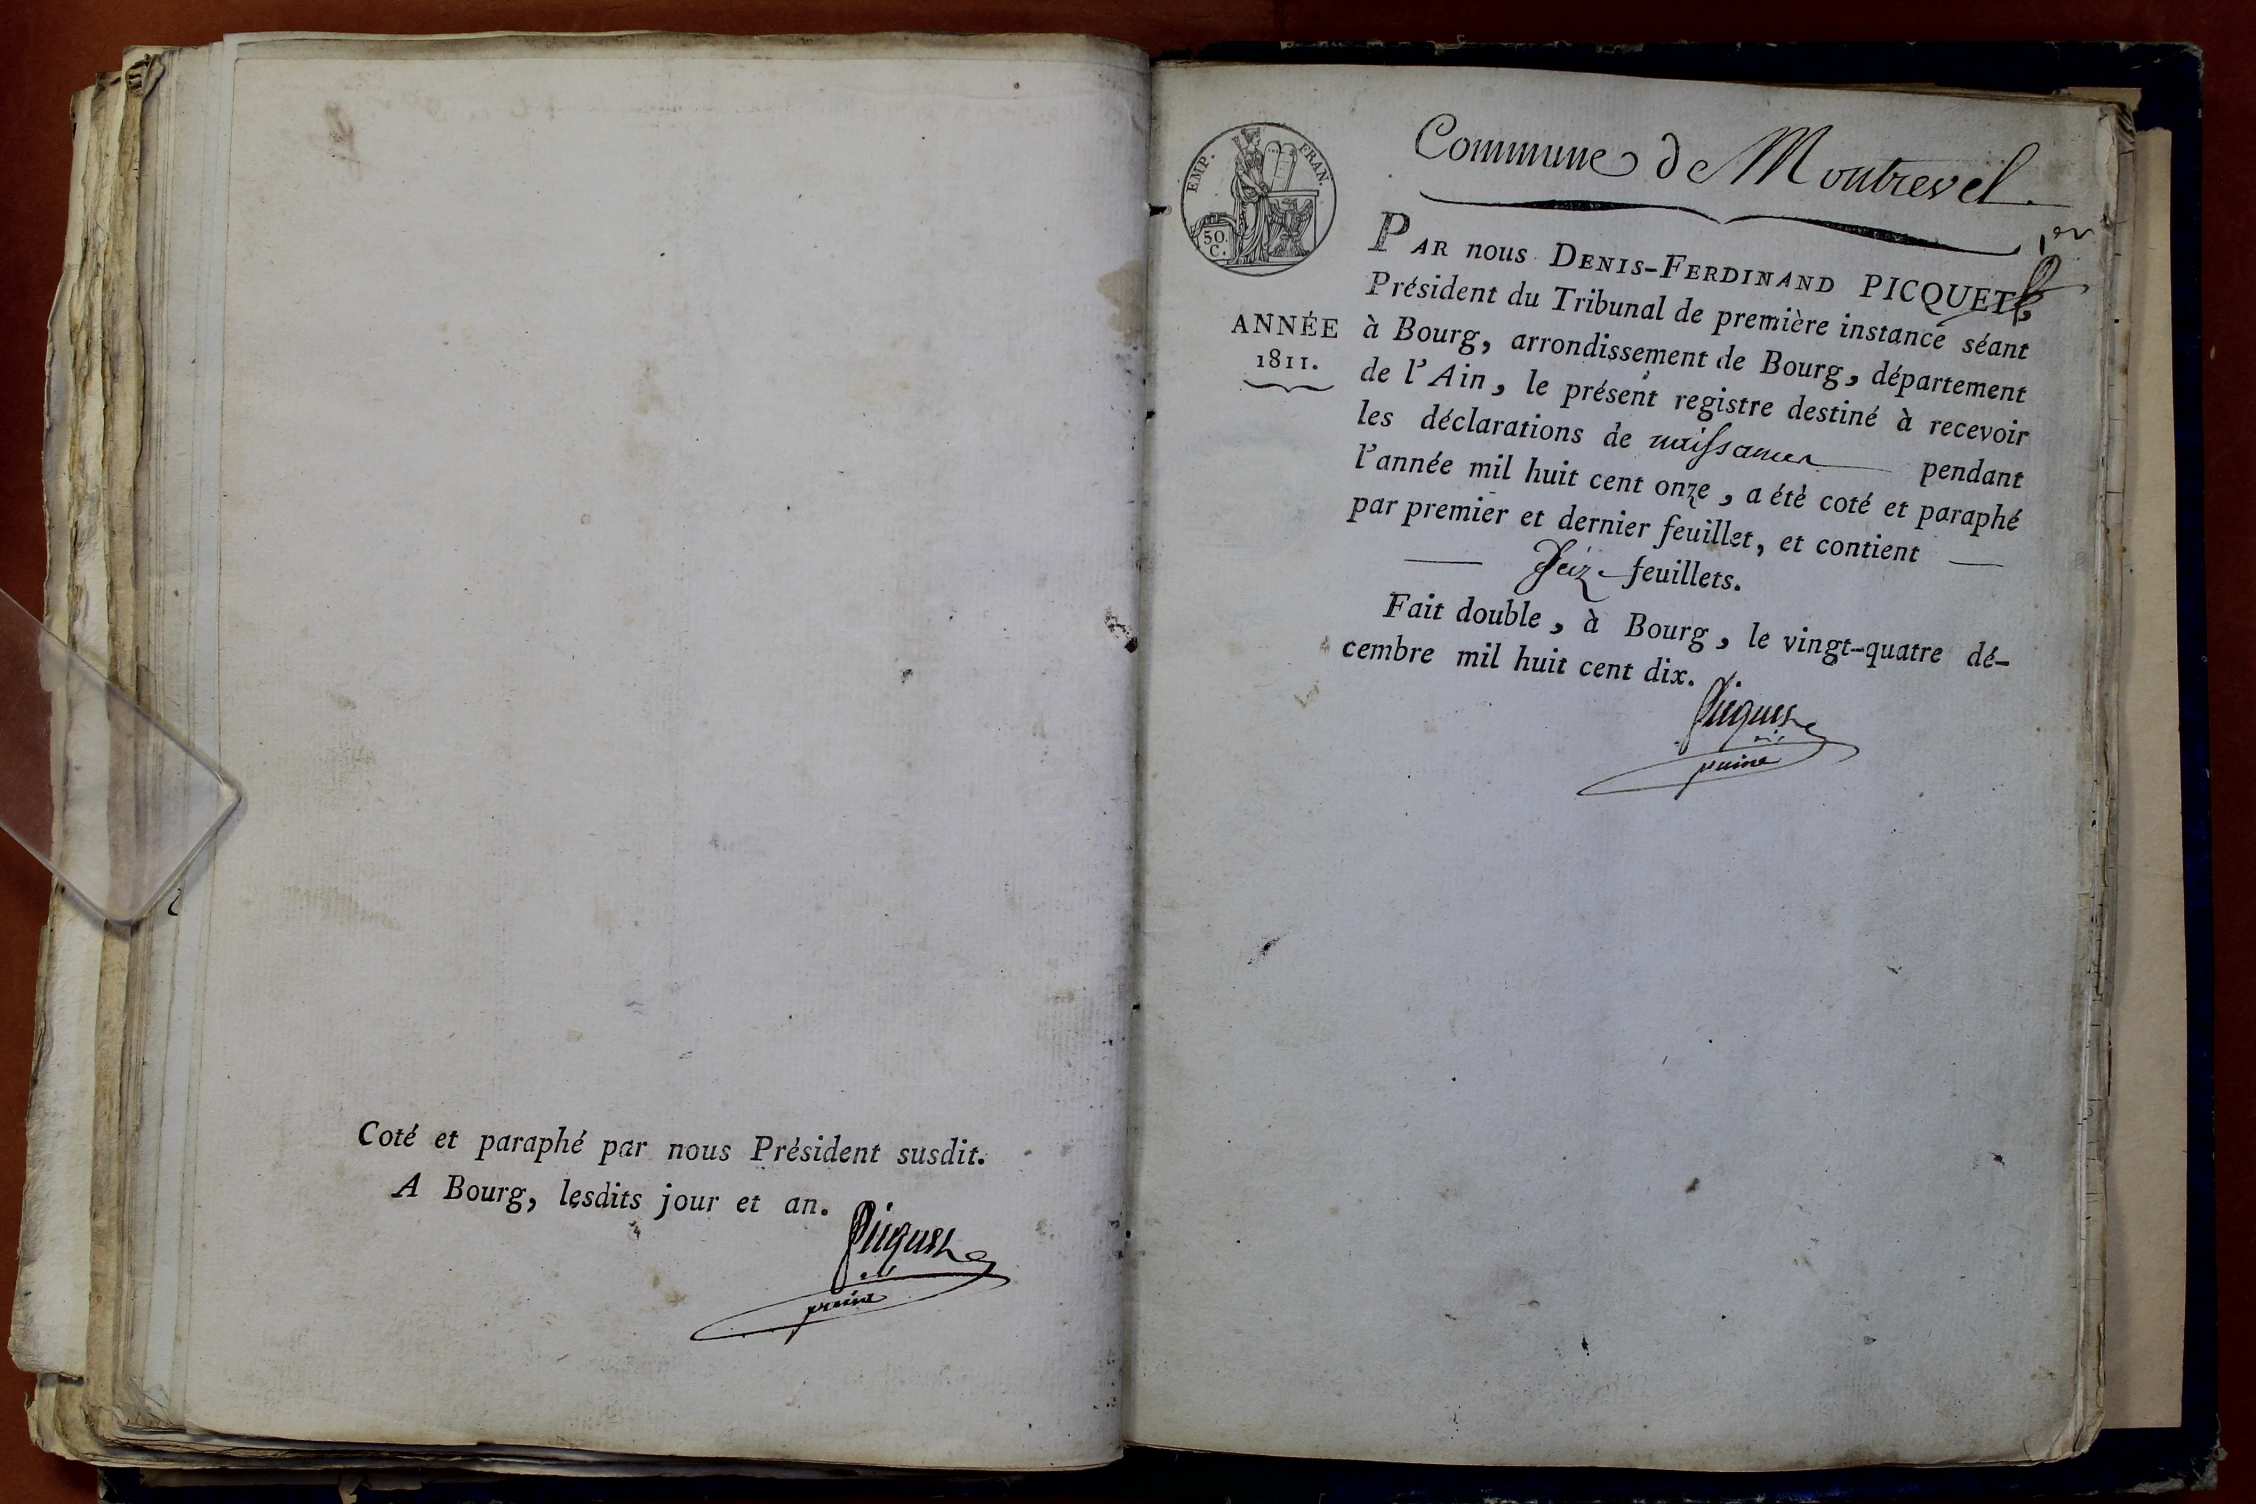 Coté et paraphé par nous Président susdit.
A Bourg, lesdits jour et an.
Picquet
Commune de Montrevel.
1er
EMP. FRAN.
50.
C.
ANNÉE
1811.
PAR nous DENIS-FERDINAND PICQUET,
Président du Tribunal de première instance séant
à Bourg, arrondissement de Bourg, département
de l'Ain, le présent registre destiné à recevoir
les déclarations de naissances pendant
l'année mil huit cent onze, a été coté et paraphé
par premier et dernier feuillet, et contient
Seize feuillets.
Fait double, à Bourg, le vingt-quatre dé-
cembre mil huit cent dix.
Picquet